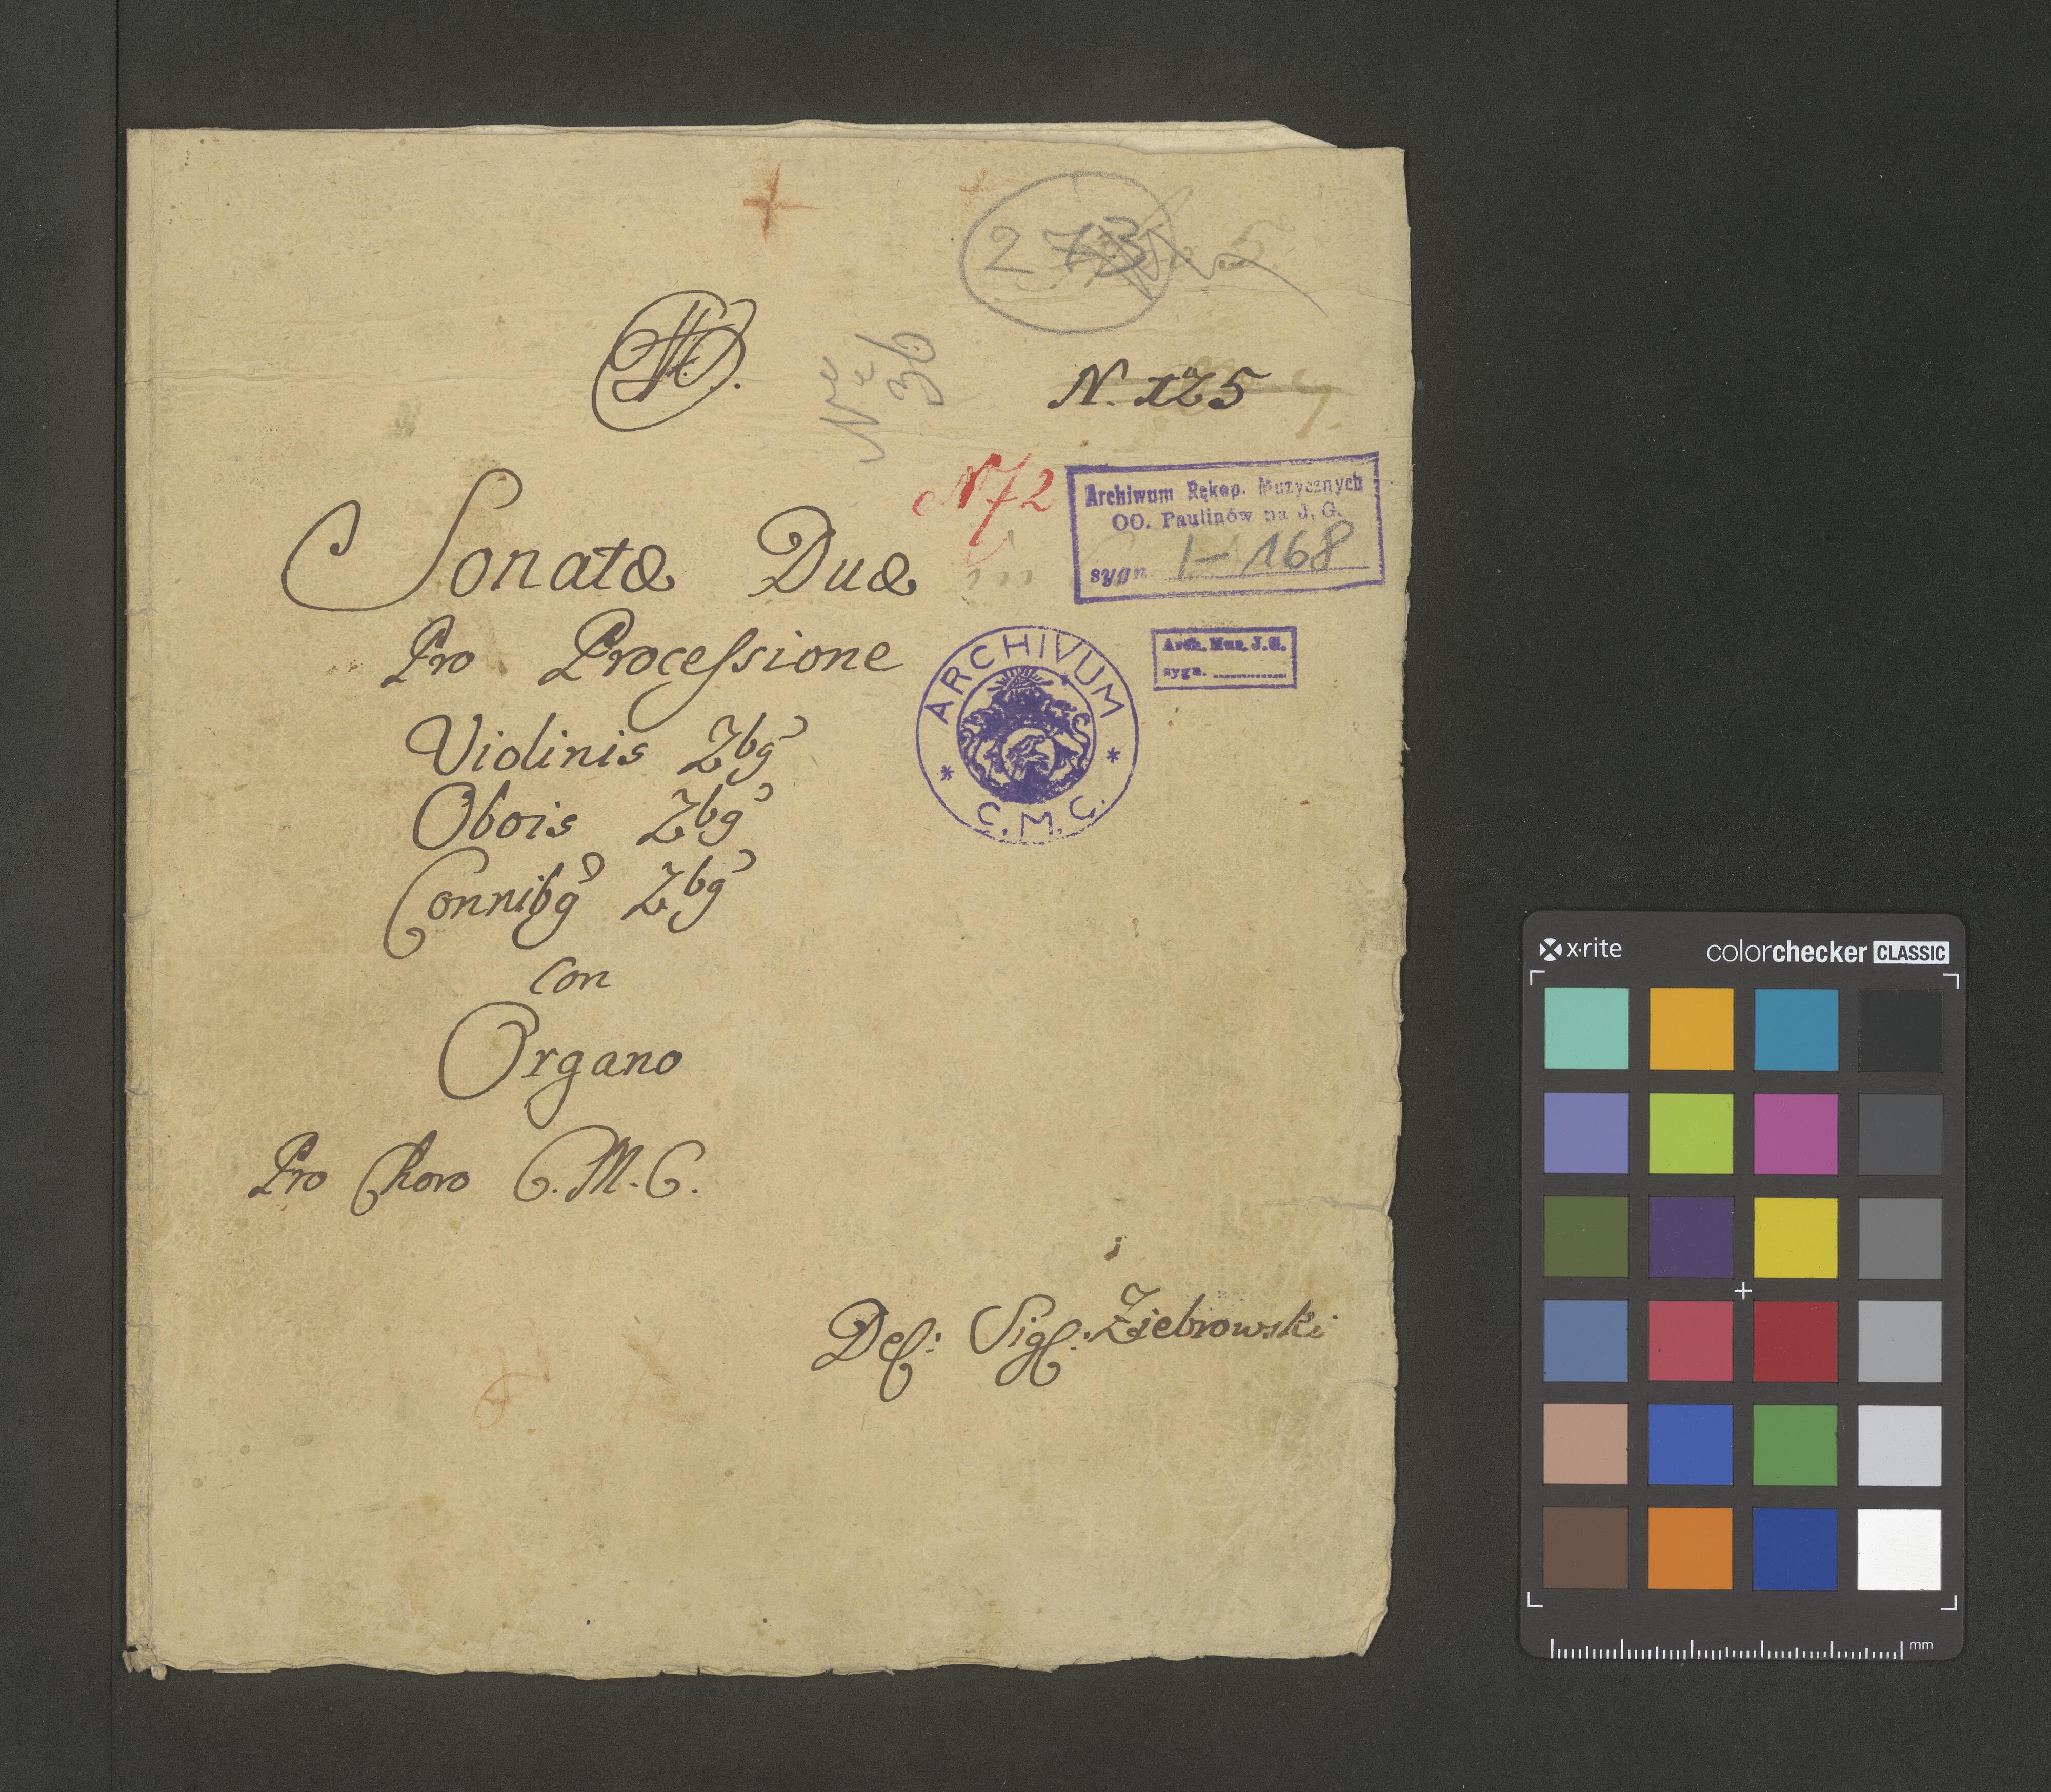 273
N. 125
36
N 72
Archiwum Rękop. Muzycznych
OO. Paulinów na J. G.
sygn. I-168
Sonatæ Duæ
Pro Processione
ARCHIVUM
* C. M. C. *
Arch. Muz. J. G.
sygn. ............
Violinis 2bꝯ
Obois 2bꝯ
Cornibꝯ 2bꝯ
con
Organo
Pro Choro C. M. C.
Del: Sigl: Ziebrowski
x·rite
colorchecker CLASSIC
mm